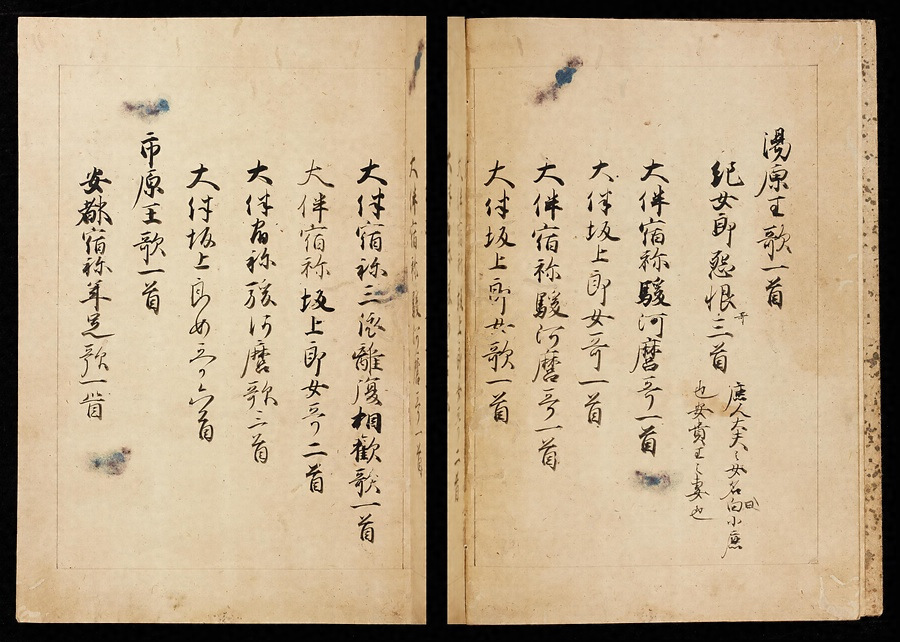 湯原王歌一首
紀女郎怨恨哥三首
鹿人大夫之女名曰小鹿
也安貴王之妻也
大伴宿祢駿河麿哥一首
大伴坂上郎女哥一首
大伴宿祢駿河麿哥一首
大伴坂上郎女歌一首
大伴宿祢三依離復相歡歌一首
大伴宿祢坂上郎女哥二首
大伴宿祢駿河麿歌三首
大伴坂上郎女哥六首
市原王歌一首
安都宿祢年足歌一首